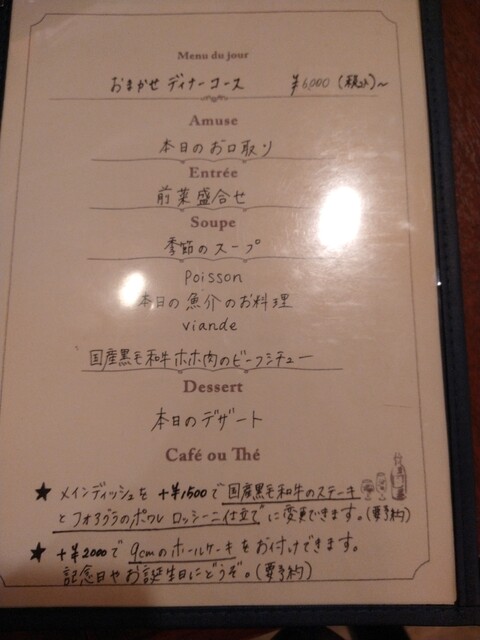 Menu du jour
おまかせ ディナーコース ¥6,000 (税込)〜
Amuse
本日のお口取り
Entrée
前菜盛合せ
Soupe
季節のスープ
Poisson
本日の魚介のお料理
viande
国産黒毛和牛ホホ肉のビーフシチュー
Dessert
本日のデザート
Café ou Thé
★ メインディッシュを +¥1500で国産黒毛和牛のステーキ
とフォアグラのポワレ ロッシーニ仕立てに変更できます。(要予約)
★ +¥2000で 9cmのホールケーキをお付けできます。
記念日やお誕生日にどうぞ。(要予約)